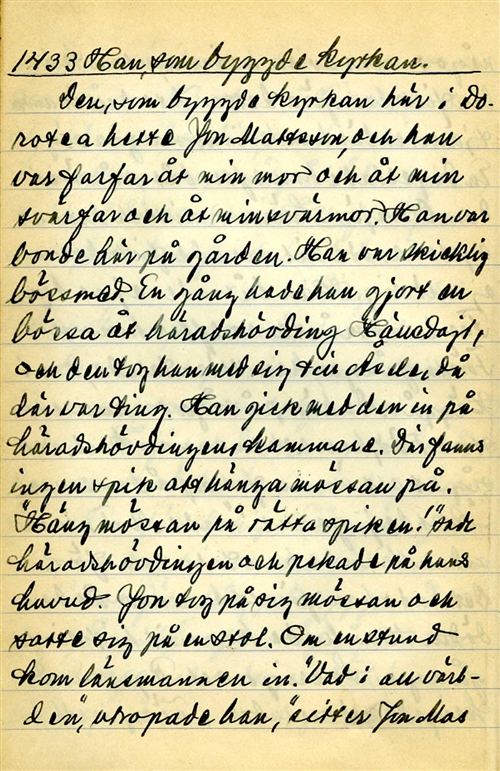 1433 Han, som byggde kyrkan.
Den, som byggde kyrkan här i Do-
rotea hette Jon Mattsson, och han
var farfar åt min mor och åt min
svärfar och åt min svärmor. Han var
bonde här på gården. Han var skicklig
bössmed. En gång hade han gjort en
bössa åt häradshövding
och den tog han med sig till Åsele, då
där var ting. Han gick med den in på
häradshövdingens kammare. Där fanns
ingen spik att hänga mössan på.
"Häng mössan på rätta spiken!" sade
häradshövdingen och pekade på hans
huvud. Jon tog på sig mössan och
satte sig på en stol. Om en stund
kom länsmannen in. "Vad i all värl-
den", utropade han, "sitter Jon Mas